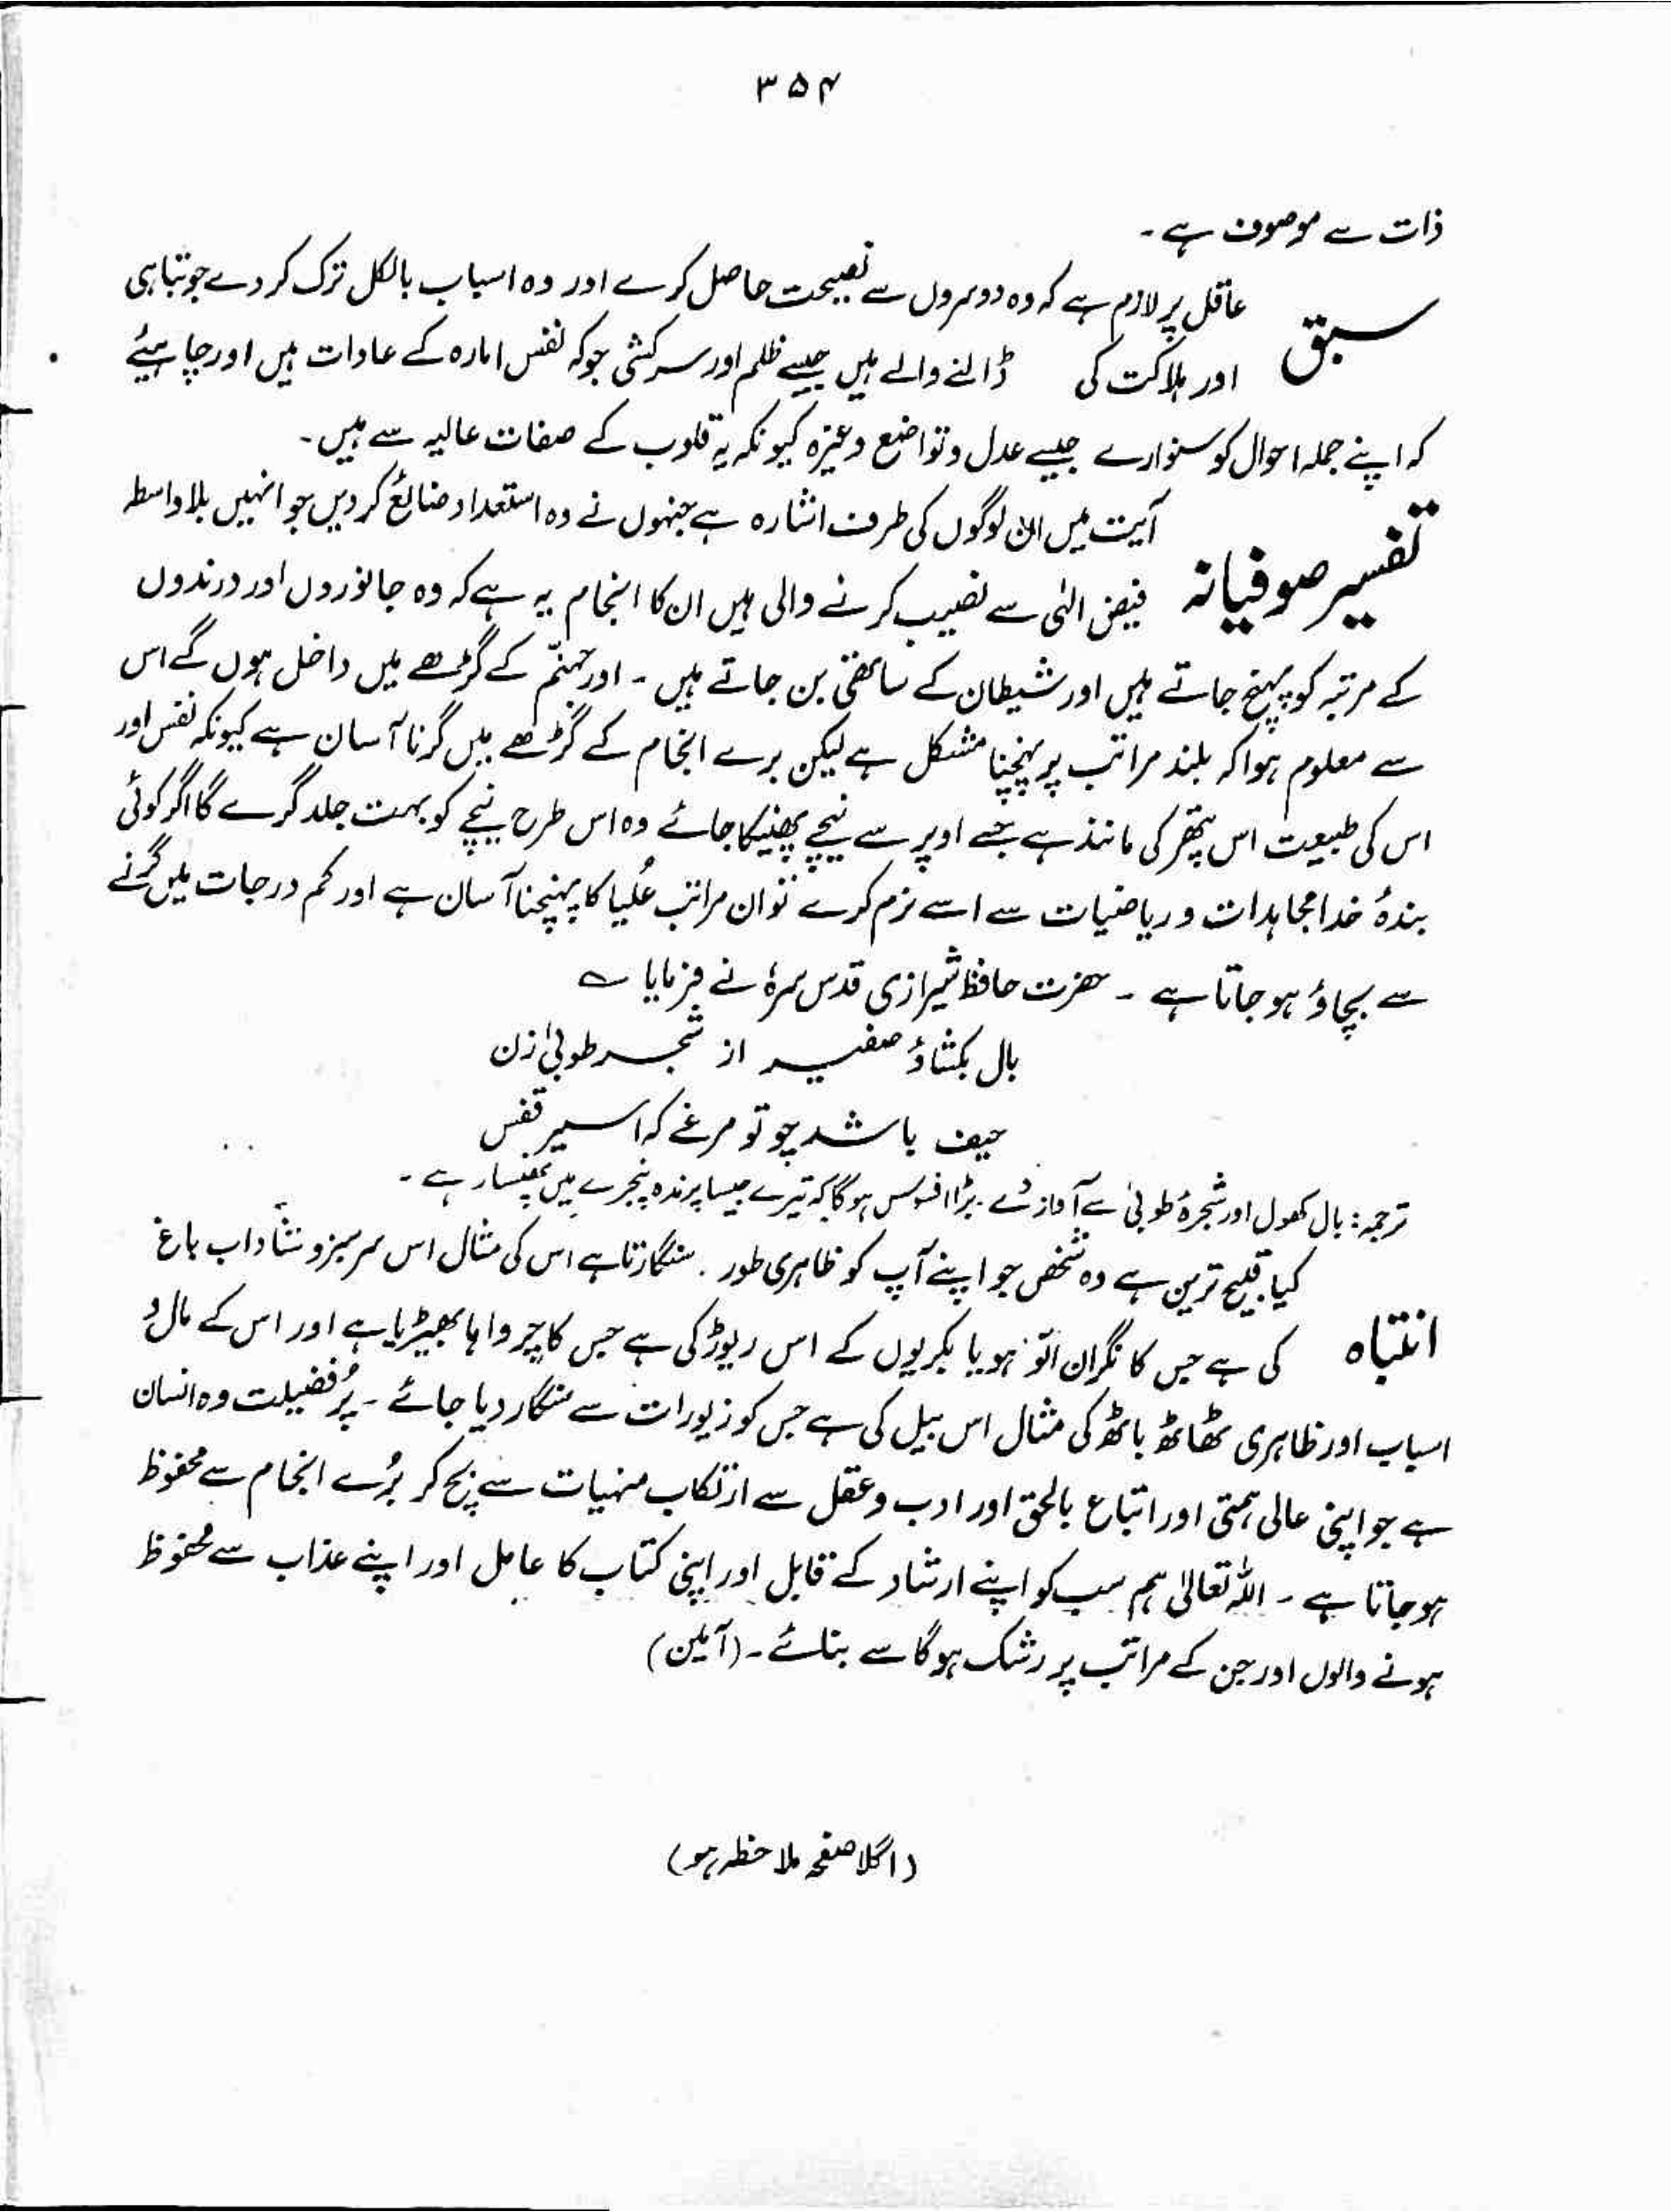 ۳۵۴
ذات سے موصوف ہے۔
سبق عاقل پر لازم ہے کہ وہ دوسروں سے نصیحت حاصل کرے اور وہ اسباب بالکل ترک کر دے جو تباہی
اور ہلاکت کی ڈالنے والے ہیں جیسے ظلم اور سرکشی جو کہ نفس امارہ کے عادات ہیں اور چاہیئے
کہ اپنے جملہ احوال کو سنوارے جیسے عدل و تواضع وغیرہ کیونکہ یہ قلوب کے صفات عالیہ سے ہیں۔
تفسیر صوفیانہ آیت میں ان لوگوں کی طرف اشارہ ہے جنہوں نے وہ استعداد ضائع کر دیں جو انہیں بلاواسطہ
فیض الٰہی سے نصیب کرنے والی ہیں ان کا انجام یہ ہے کہ وہ جانوروں اور درندوں
کے مرتبہ کو پہنچ جاتے ہیں اور شیطان کے ساتھی بن جاتے ہیں۔ اور جہنّم کے گڑھے میں داخل ہوں گے اس
سے معلوم ہوا کہ بلند مراتب پر پہنچنا مشکل ہے لیکن برے انجام کے گڑھے میں گرنا آسان ہے کیونکہ نفس اور
اس کی طبیعت اس پتھر کی مانند ہے جسے اوپر سے نیچے پھینکا جائے وہ اس طرح نیچے کو بہت جلد گرے گا اگر کوئی
بندۂ خدا مجاہدات و ریاضیات سے اسے نرم کرے تو ان مراتب عُلیا کا پہنچنا آسان ہے اور کم درجات میں گرنے
سے بچاؤ ہو جاتا ہے۔ حضرت حافظ شیرازی قدس سرہٗ نے فرمایا ؎
بال بکشاؤ صفیر از شجر طوبیٰ زن
حیف باشد چو تو مرغے کہ اسیر قفس
ترجمہ: بال کھول اور شجرۂ طوبیٰ سے آواز دے۔ بڑا افسوس ہو گا کہ تیرے جیسا پرندہ پنجرے میں پھنسا رہے۔
انتباہ کیا قبیح ترین ہے وہ شخص جو اپنے آپ کو ظاہری طور۔ سنگارتا ہے اس کی مثال اس سرسبز و شاداب باغ
کی ہے جس کا نگران الّو ہو یا بکریوں کے اس ریوڑ کی ہے جس کا چرواہا بھیڑیا ہے اور اس کے مال و
اسباب اور ظاہری ٹھاٹھ باٹھ کی مثال اس بیل کی ہے جس کو زیورات سے سنگار دیا جائے۔ پُر فضیلت وہ انسان
ہے جو اپنی عالی ہمتی اور اتباع بالحق اور ادب و عقل سے ارتکاب منہیات سے بچ کر بُرے انجام سے محفوظ
ہو جاتا ہے۔ اللہ تعالیٰ ہم سب کو اپنے ارشاد کے قابل اور اپنی کتاب کا عامل اور اپنے عذاب سے محفوظ
ہونے والوں اور جن کے مراتب پر رشک ہو گا سے بنائے۔ (آمین)
(اگلا صفحہ ملاحظہ ہو)